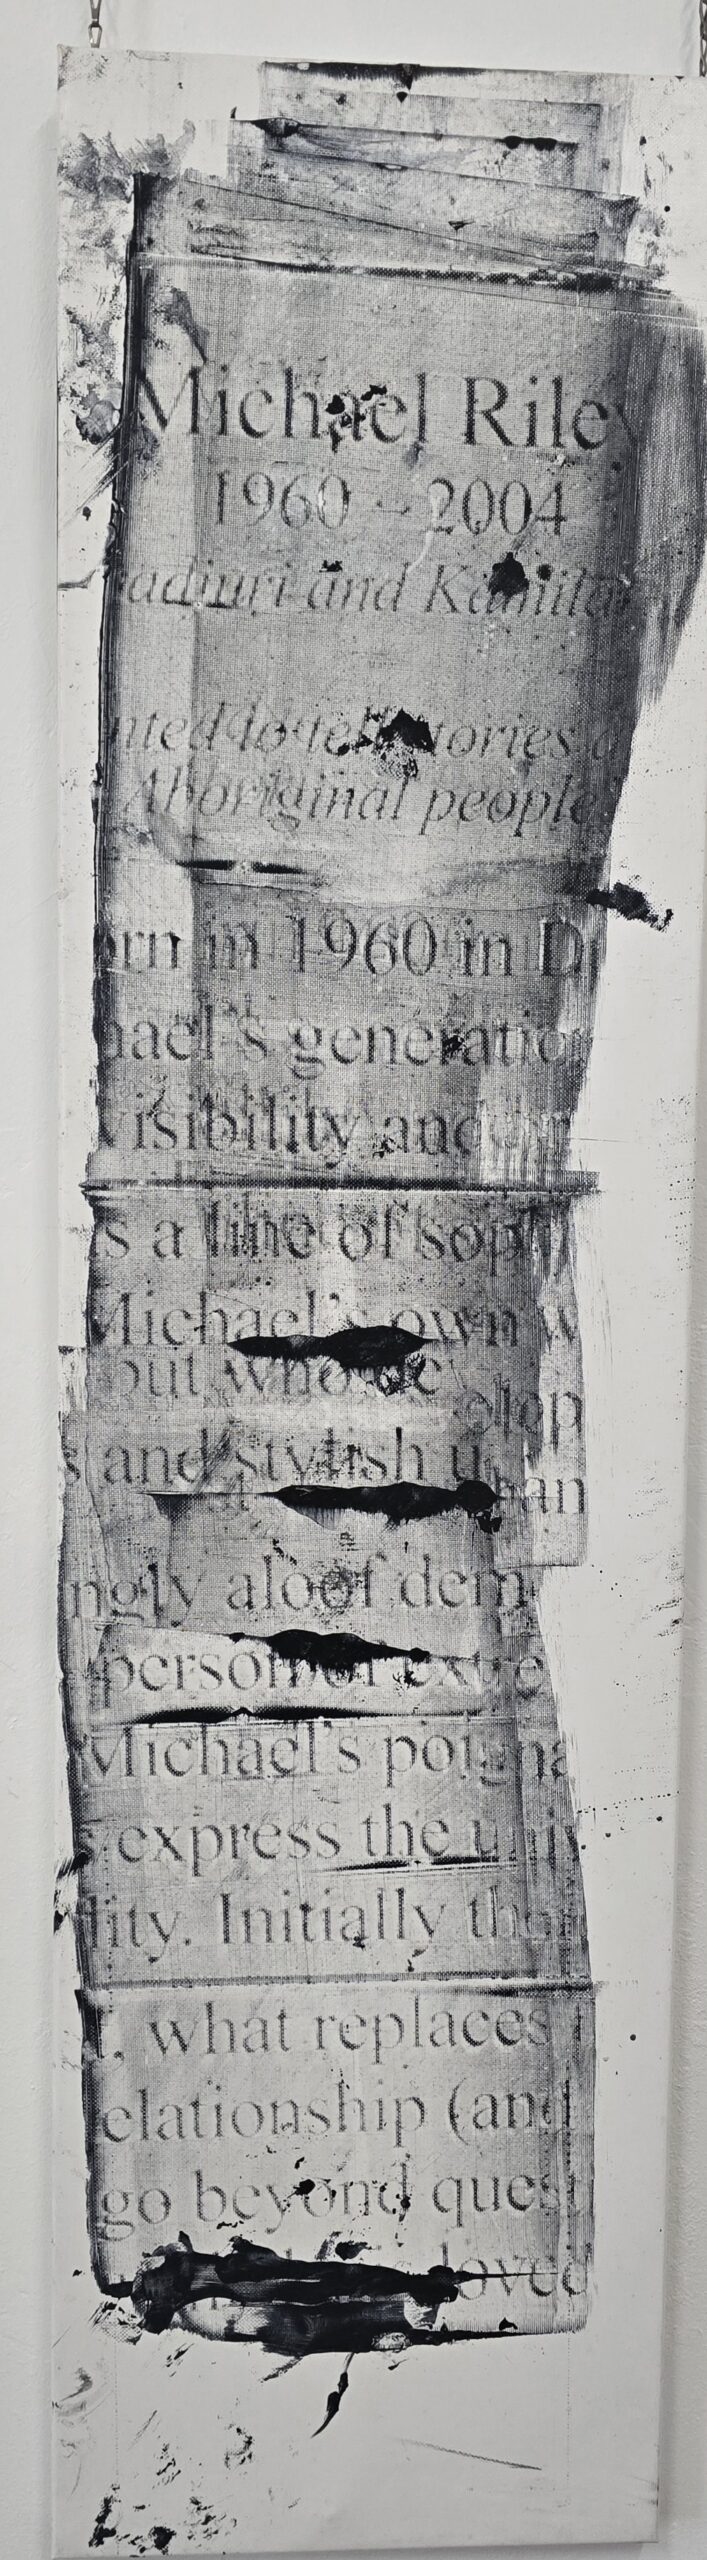 Michael Riley
1960 – 2004
adjuri and Kamila
nted to tell stories a
Aboriginal people
orn in 1960 in D
hael's generation
visibility and
s a line of soph
Michael's own w
out who we
s and stylish u
ngly aloof dem
person of extre
Michael's poigna
s express the univ
lity. Initially the
, what replaces
elationship (and
go beyond quest
loved